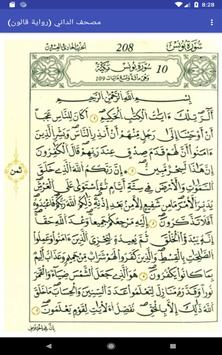 8:28
مصحف الداني (رواية قالون)
سورة يونس 208 الحزب الحادي والعشرون
10 سورة يونس مكية
وهي مائة وتسع آيات 109
بسم الله الرحمن الرحيم
ألر تلك ءايت الكتب الحكيم أكان للناس عجبا
أن اوحينا إلى رجل منهم أن انذر الناس وبشر الذين ءامنوا
أن لهم قدم صدق عند ربهم قال الكفرون
إن هذا لسحر مبين إن ربكم الله الذي خلق السموت
والارض في ستة أيام ثم استوى على العرش يدبر الامر
ما من شفيع الا من بعد إذنه ذلكم الله ربكم فاعبدوه
أفلا تذكرون إليه مرجعكم جميعا وعد الله حقا
إنه يبدؤا الخلق ثم يعيده ليجزي الذين ءامنوا وعملوا
الصلحت بالقسط والذين كفروا لهم شراب من حميم
وعذاب اليم بما كانوا يكفرون هو الذي جعل
الشمس ضياء والقمر نورا وقدره منازل لتعلموا عدد السنين
والحساب ما خلق الله ذلك إلا بالحق نفصل الايت لقوم يعلمون
ثمن